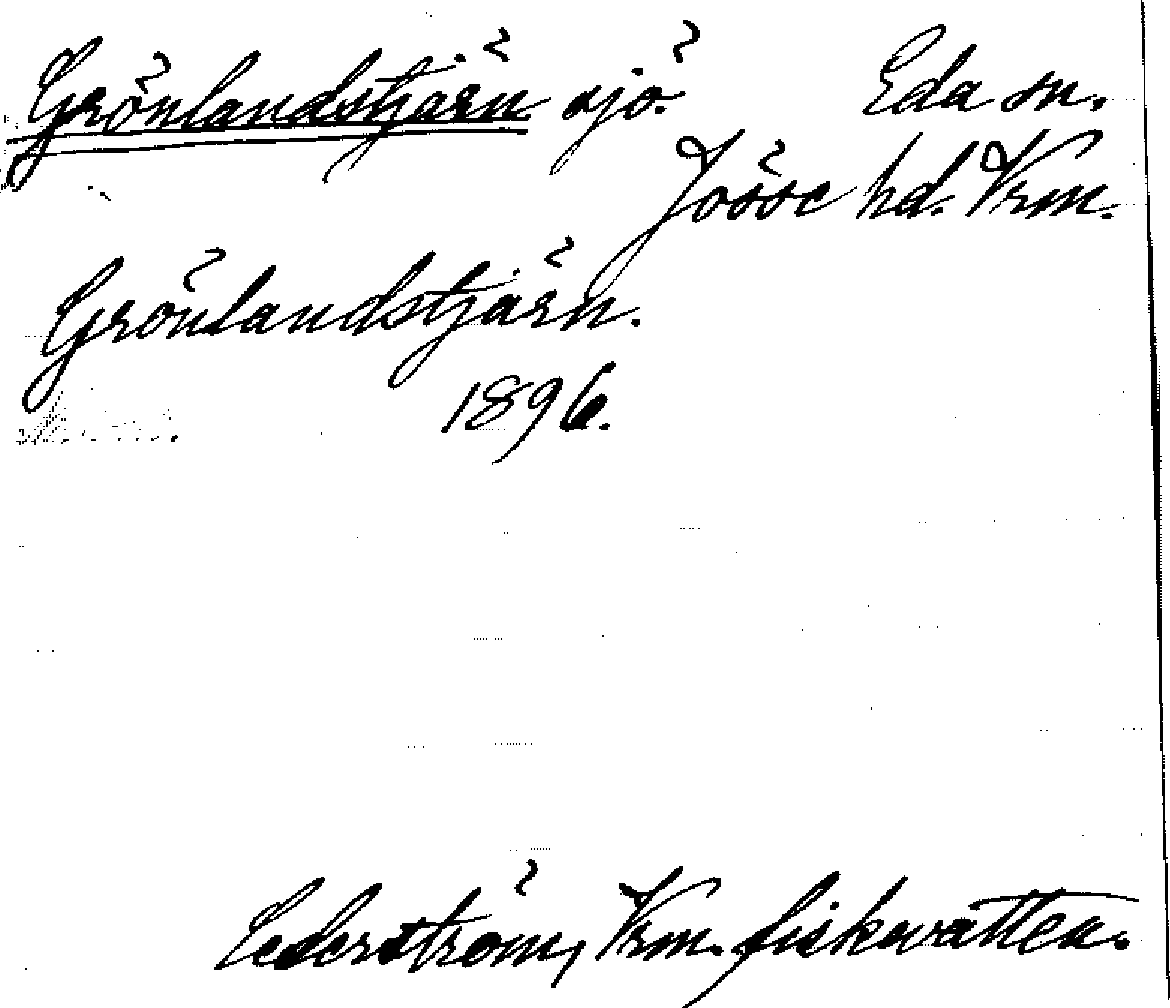 Grönlandstjärn sjö. Eda sn.
Jösse hd. Vrm.
Grönlandstjärn.
1896.
Cederström, Vrm. fiskevatten.